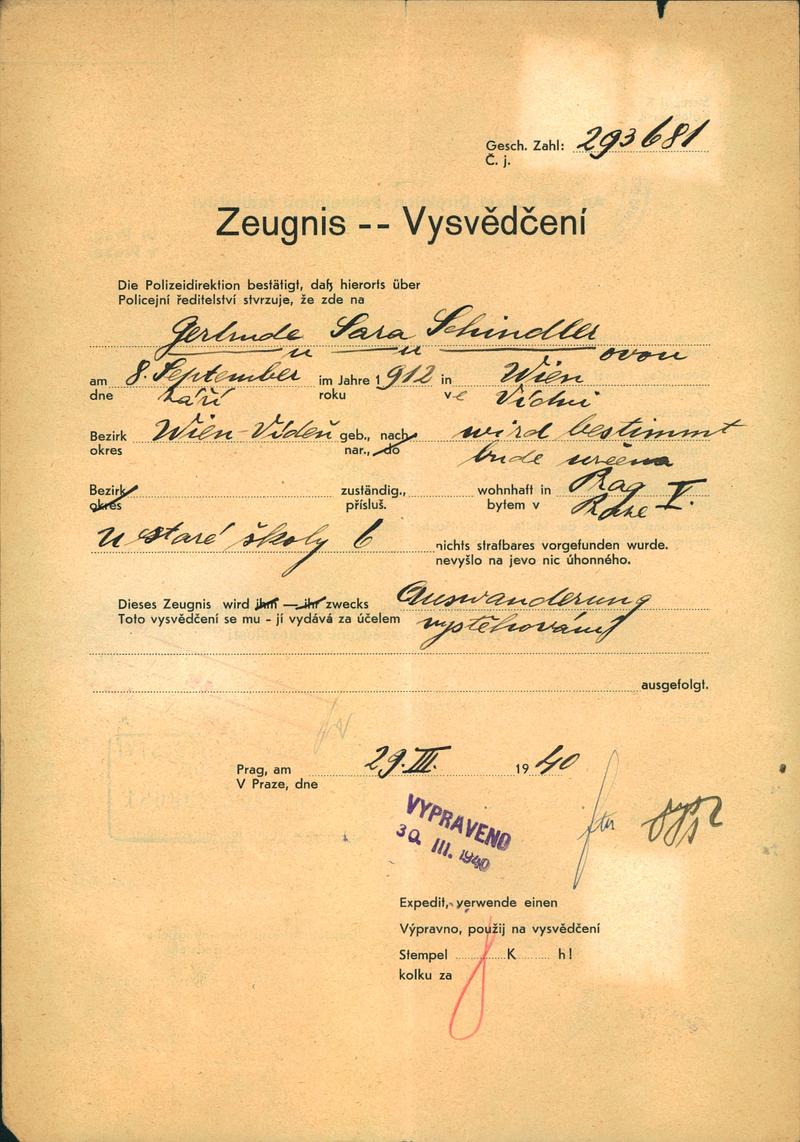 Gesch. Zahl: 293681
Č. j.
Zeugnis -- Vysvědčení
Die Polizeidirektion bestätigt, daß hierorts über
Policejní ředitelství stvrzuje, že zde na
Gertrude Sara Schindler
u u ovou
am 8. September im Jahre 1912 in Wien
dne září roku ve Vídni
Bezirk Wien-Vídeň geb., nach wird bestimmt
okres nar., do bude určena
Bezirk zuständig., wohnhaft in Prag V.
okres přísluš. bytem v Praze
U staré školy 6 nichts strafbares vorgefunden wurde.
nevyšlo na jevo nic úhonného.
Dieses Zeugnis wird ihm — ihr zwecks Auswanderung
Toto vysvědčení se mu - jí vydává za účelem vystěhování
ausgefolgt.
Prag, am 29. III. 1940
V Praze, dne
VYPRAVENO
30. III. 1940
Expedit, verwende einen
Výpravno, použij na vysvědčení
Stempel K h!
kolku za